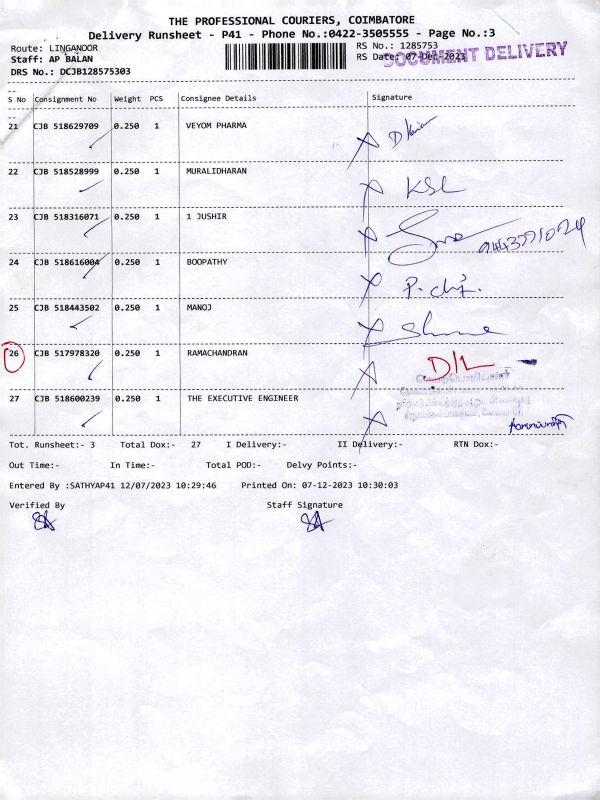 THE PROFESSIONAL COURIERS, COIMBATORE
Delivery Runsheet - P41 - Phone No.:0422-3505555 - Page No.:3
Route: LINGANOOR
RS No.: 1285753
Staff: AP BALAN
RS Date: 07-Dec-2023
DOCUMENT DELIVERY
DRS No.: DCJB128575303
S No Consignment No Weight PCS Consignee Details Signature
21 CJB 518629709 0.250 1 VEYOM PHARMA
22 CJB 518528999 0.250 1 MURALIDHARAN KSL
23 CJB 518316071 0.250 1 1 JUSHIR
24 CJB 518616004 0.250 1 BOOPATHY
25 CJB 518443502 0.250 1 MANOJ
26 CJB 517978320 0.250 1 RAMACHANDRAN D/L
27 CJB 518600239 0.250 1 THE EXECUTIVE ENGINEER
Tot. Runsheet:- 3 Total Dox:- 27 I Delivery:- II Delivery:- RTN Dox:-
Out Time:- In Time:- Total POD:- Delvy Points:-
Entered By :SATHYAP41 12/07/2023 10:29:46 Printed On: 07-12-2023 10:30:03
Verified By Staff Signature